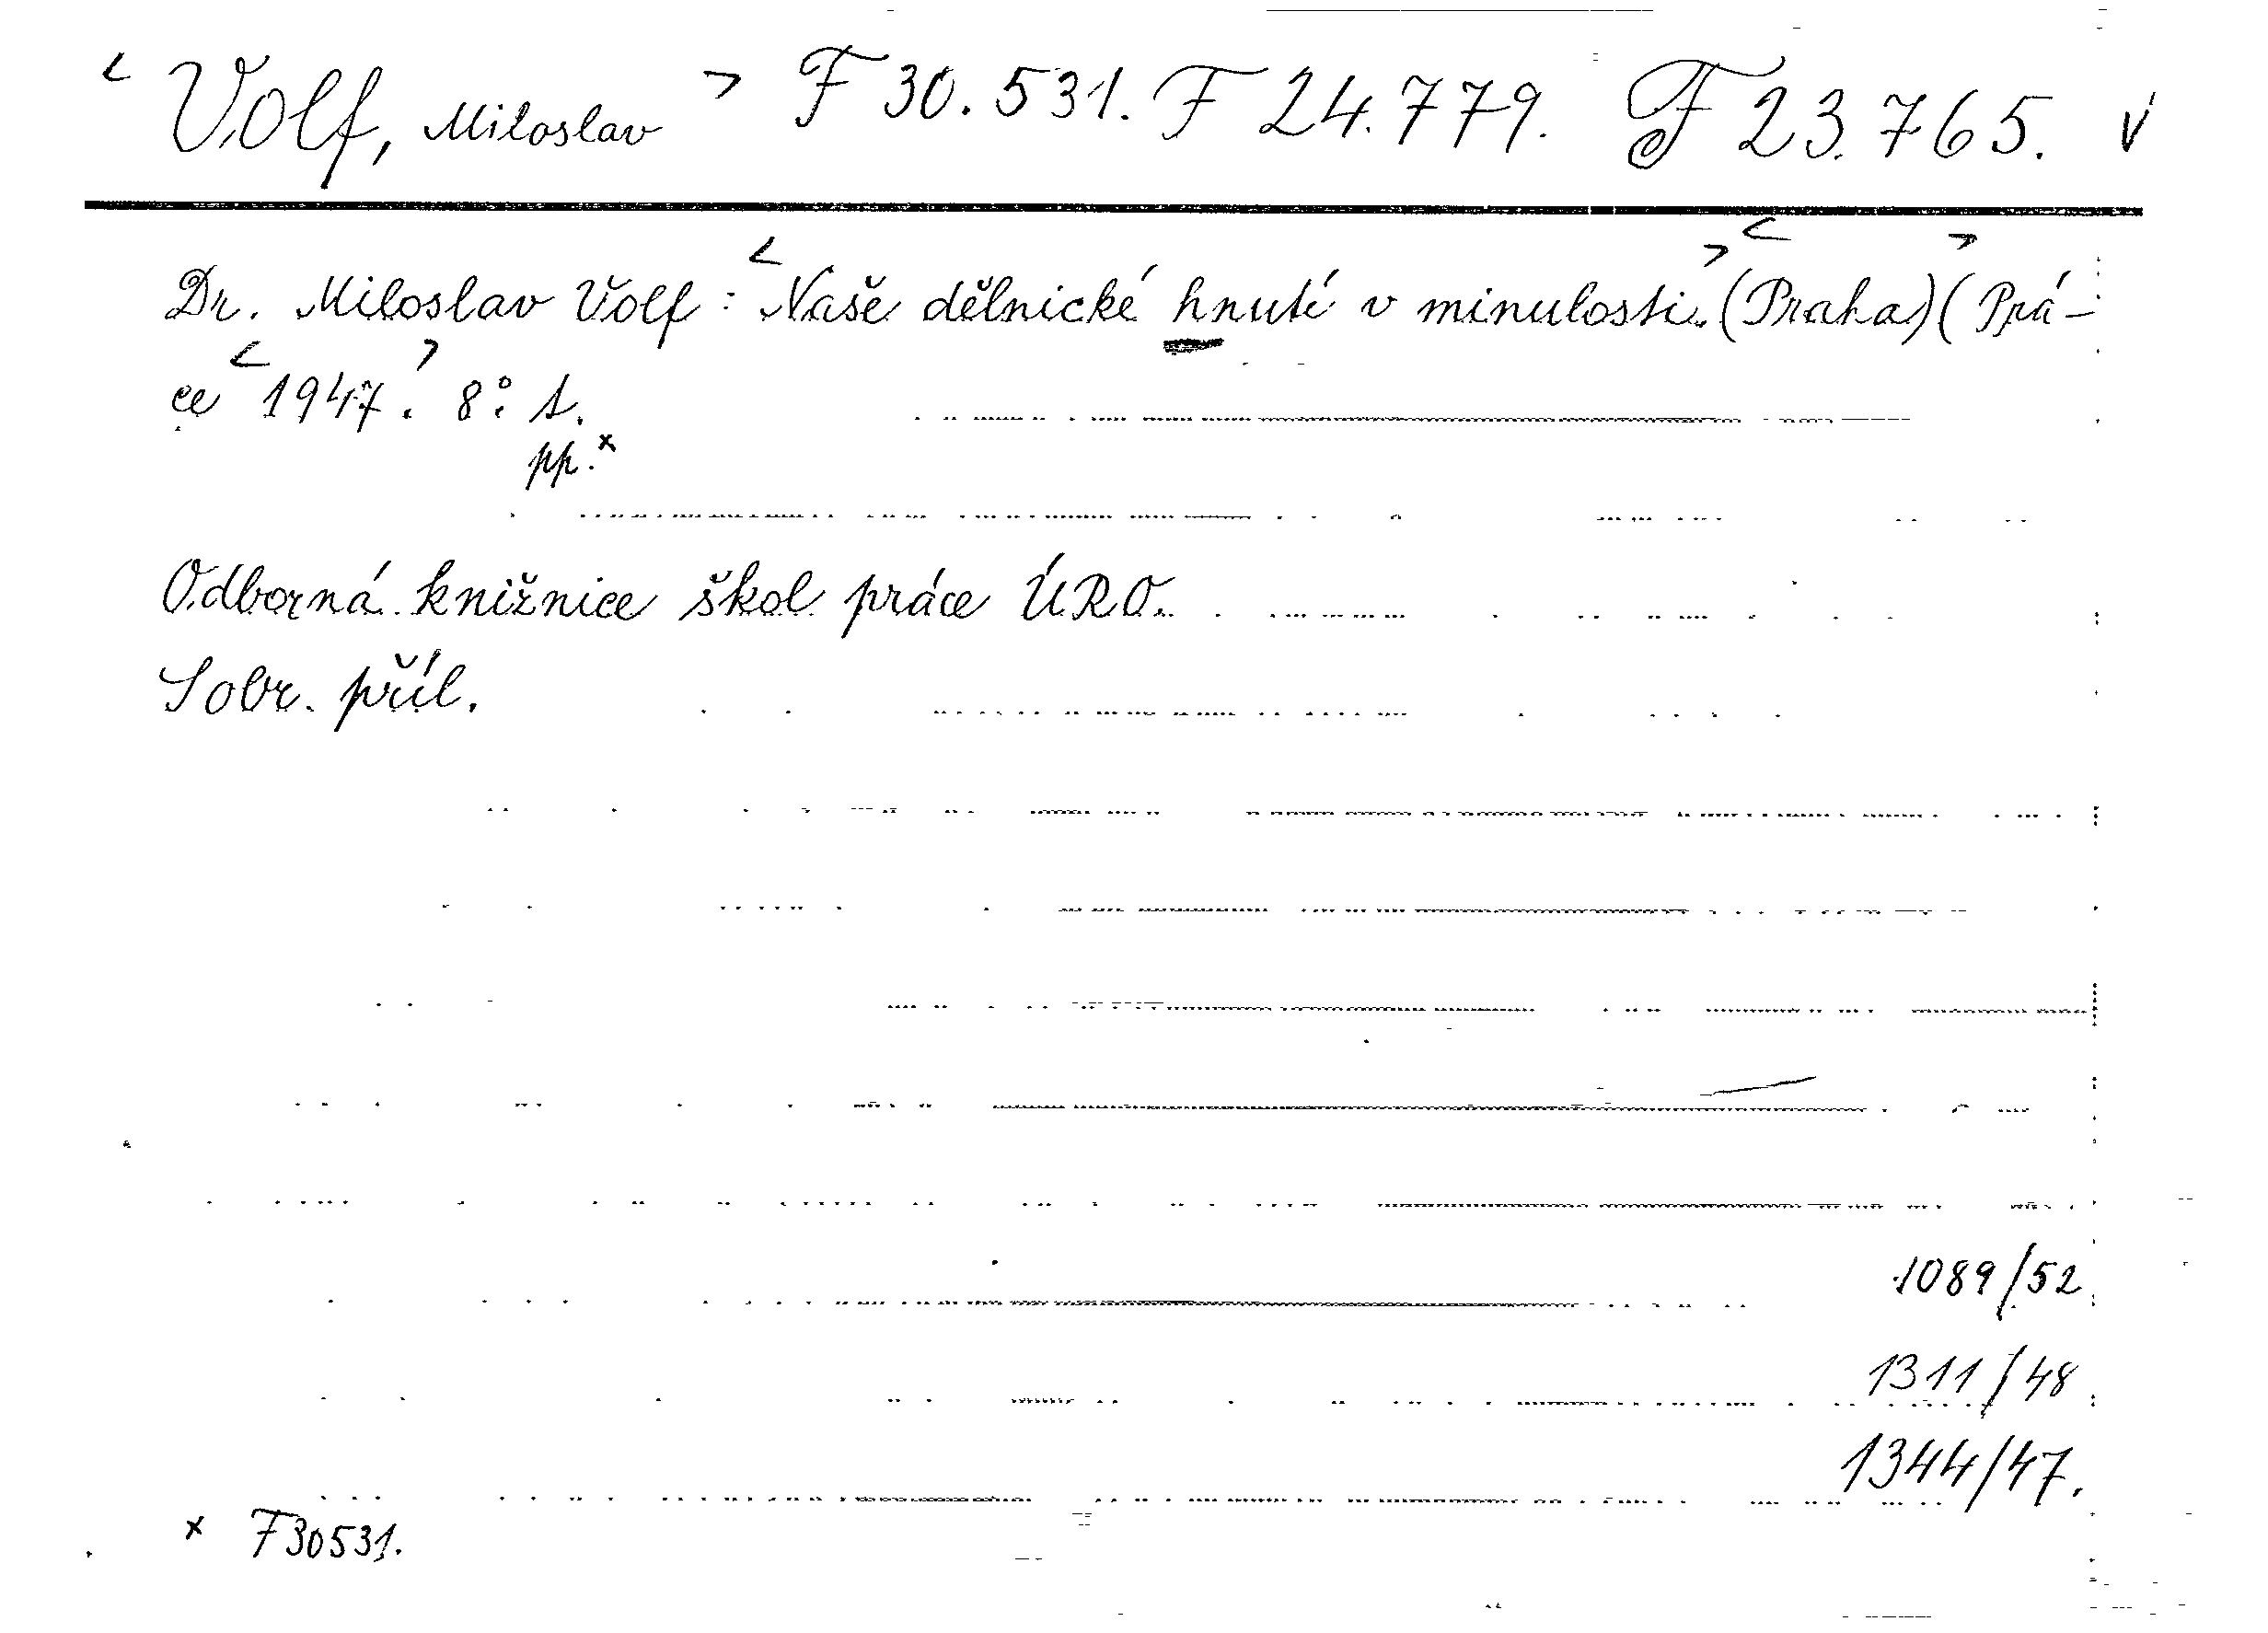 < Volf, Miloslav > F 30.531. F 24.779. F 23.765. v
Dr. Miloslav Volf: <Naše dělnické hnutí v minulosti.> <(Praha)> (Prá-
ce <1947.> 8°. s.
pp.x
Odborná knižnice škol práce ÚRO.
S obr. příl.
1089/52
1311/48
1344/47.
x F30531.